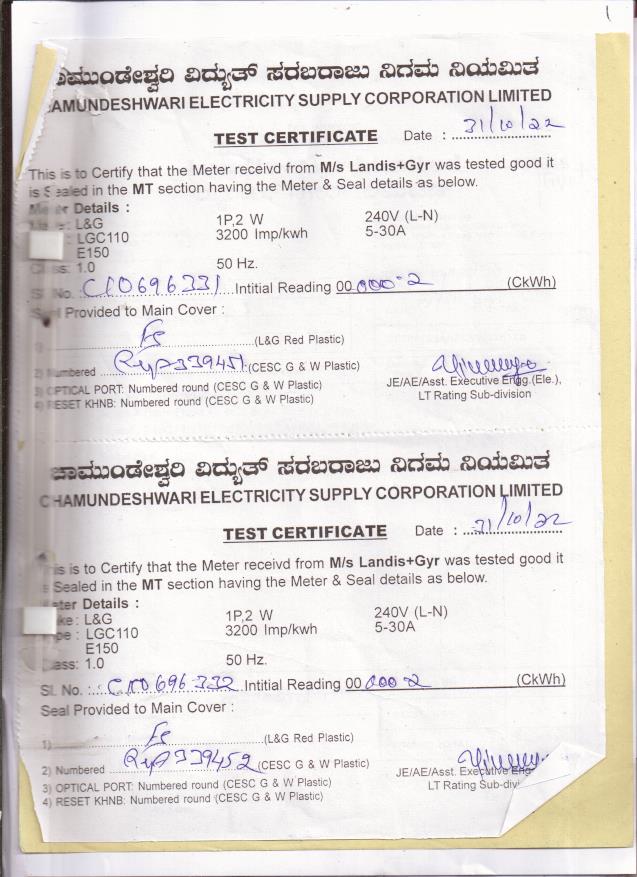 1
ಚಾಮುಂಡೇಶ್ವರಿ ವಿದ್ಯುತ್ ಸರಬರಾಜು ನಿಗಮ ನಿಯಮಿತ
AMUNDESHWARI ELECTRICITY SUPPLY CORPORATION LIMITED
TEST CERTIFICATE Date : 31/10/22
This is to Certify that the Meter receivd from M/s Landis+Gyr was tested good it
is Sealed in the MT section having the Meter & Seal details as below.
Meter Details :
L&G 1P,2 W 240V (L-N)
: LGC110 3200 Imp/kwh 5-30A
E150
Class: 1.0 50 Hz.
Sl. No. C110696331 Intitial Reading 00 000-2 (CkWh)
Seal Provided to Main Cover :
(L&G Red Plastic)
2) Numbered 339451 (CESC G & W Plastic)
3) OPTICAL PORT: Numbered round (CESC G & W Plastic) JE/AE/Asst. Executive Engg.(Ele.),
4) RESET KHNB: Numbered round (CESC G & W Plastic) LT Rating Sub-division
ಚಾಮುಂಡೇಶ್ವರಿ ವಿದ್ಯುತ್ ಸರಬರಾಜು ನಿಗಮ ನಿಯಮಿತ
CHAMUNDESHWARI ELECTRICITY SUPPLY CORPORATION LIMITED
TEST CERTIFICATE Date : 31/10/22
is is to Certify that the Meter receivd from M/s Landis+Gyr was tested good it
s Sealed in the MT section having the Meter & Seal details as below.
eter Details :
ke: L&G 1P,2 W 240V (L-N)
pe : LGC110 3200 Imp/kwh 5-30A
E150
ass: 1.0 50 Hz.
Sl. No. : C110696332 Intitial Reading 00 000 2 (CkWh)
Seal Provided to Main Cover :
1) (L&G Red Plastic)
2) Numbered 339452 (CESC G & W Plastic)
3) OPTICAL PORT: Numbered round (CESC G & W Plastic) JE/AE/Asst. Executive Eng
4) RESET KHNB: Numbered round (CESC G & W Plastic) LT Rating Sub-divi